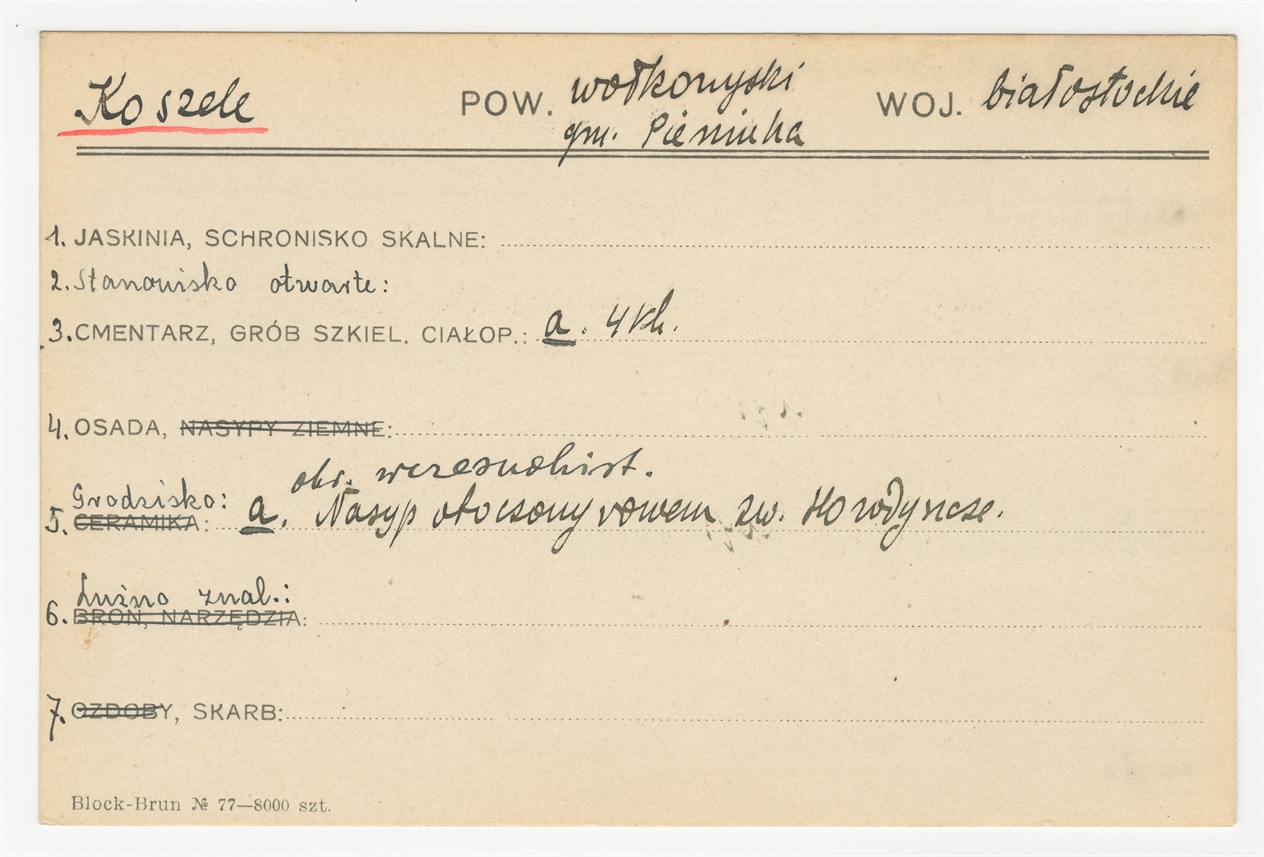 Koszele POW. wołkowyski WOJ. białostockie
gm. Pieniuha
1. JASKINIA, SCHRONISKO SKALNE:
2. Stanowisko otwarte:
3. CMENTARZ, GRÓB SZKIEL. CIAŁOP.: a. 4 kh.
4. OSADA, NASYPY ZIEMNE:
okr. wczesnohist.
Grodzisko: a. Nasyp otoczony rowem zw. Horodyncze.
5. CERAMIKA:
Luźno znal.:
6. BROŃ, NARZĘDZIA:
7. OZDOBY, SKARB:
Block-Brun № 77—8000 szt.